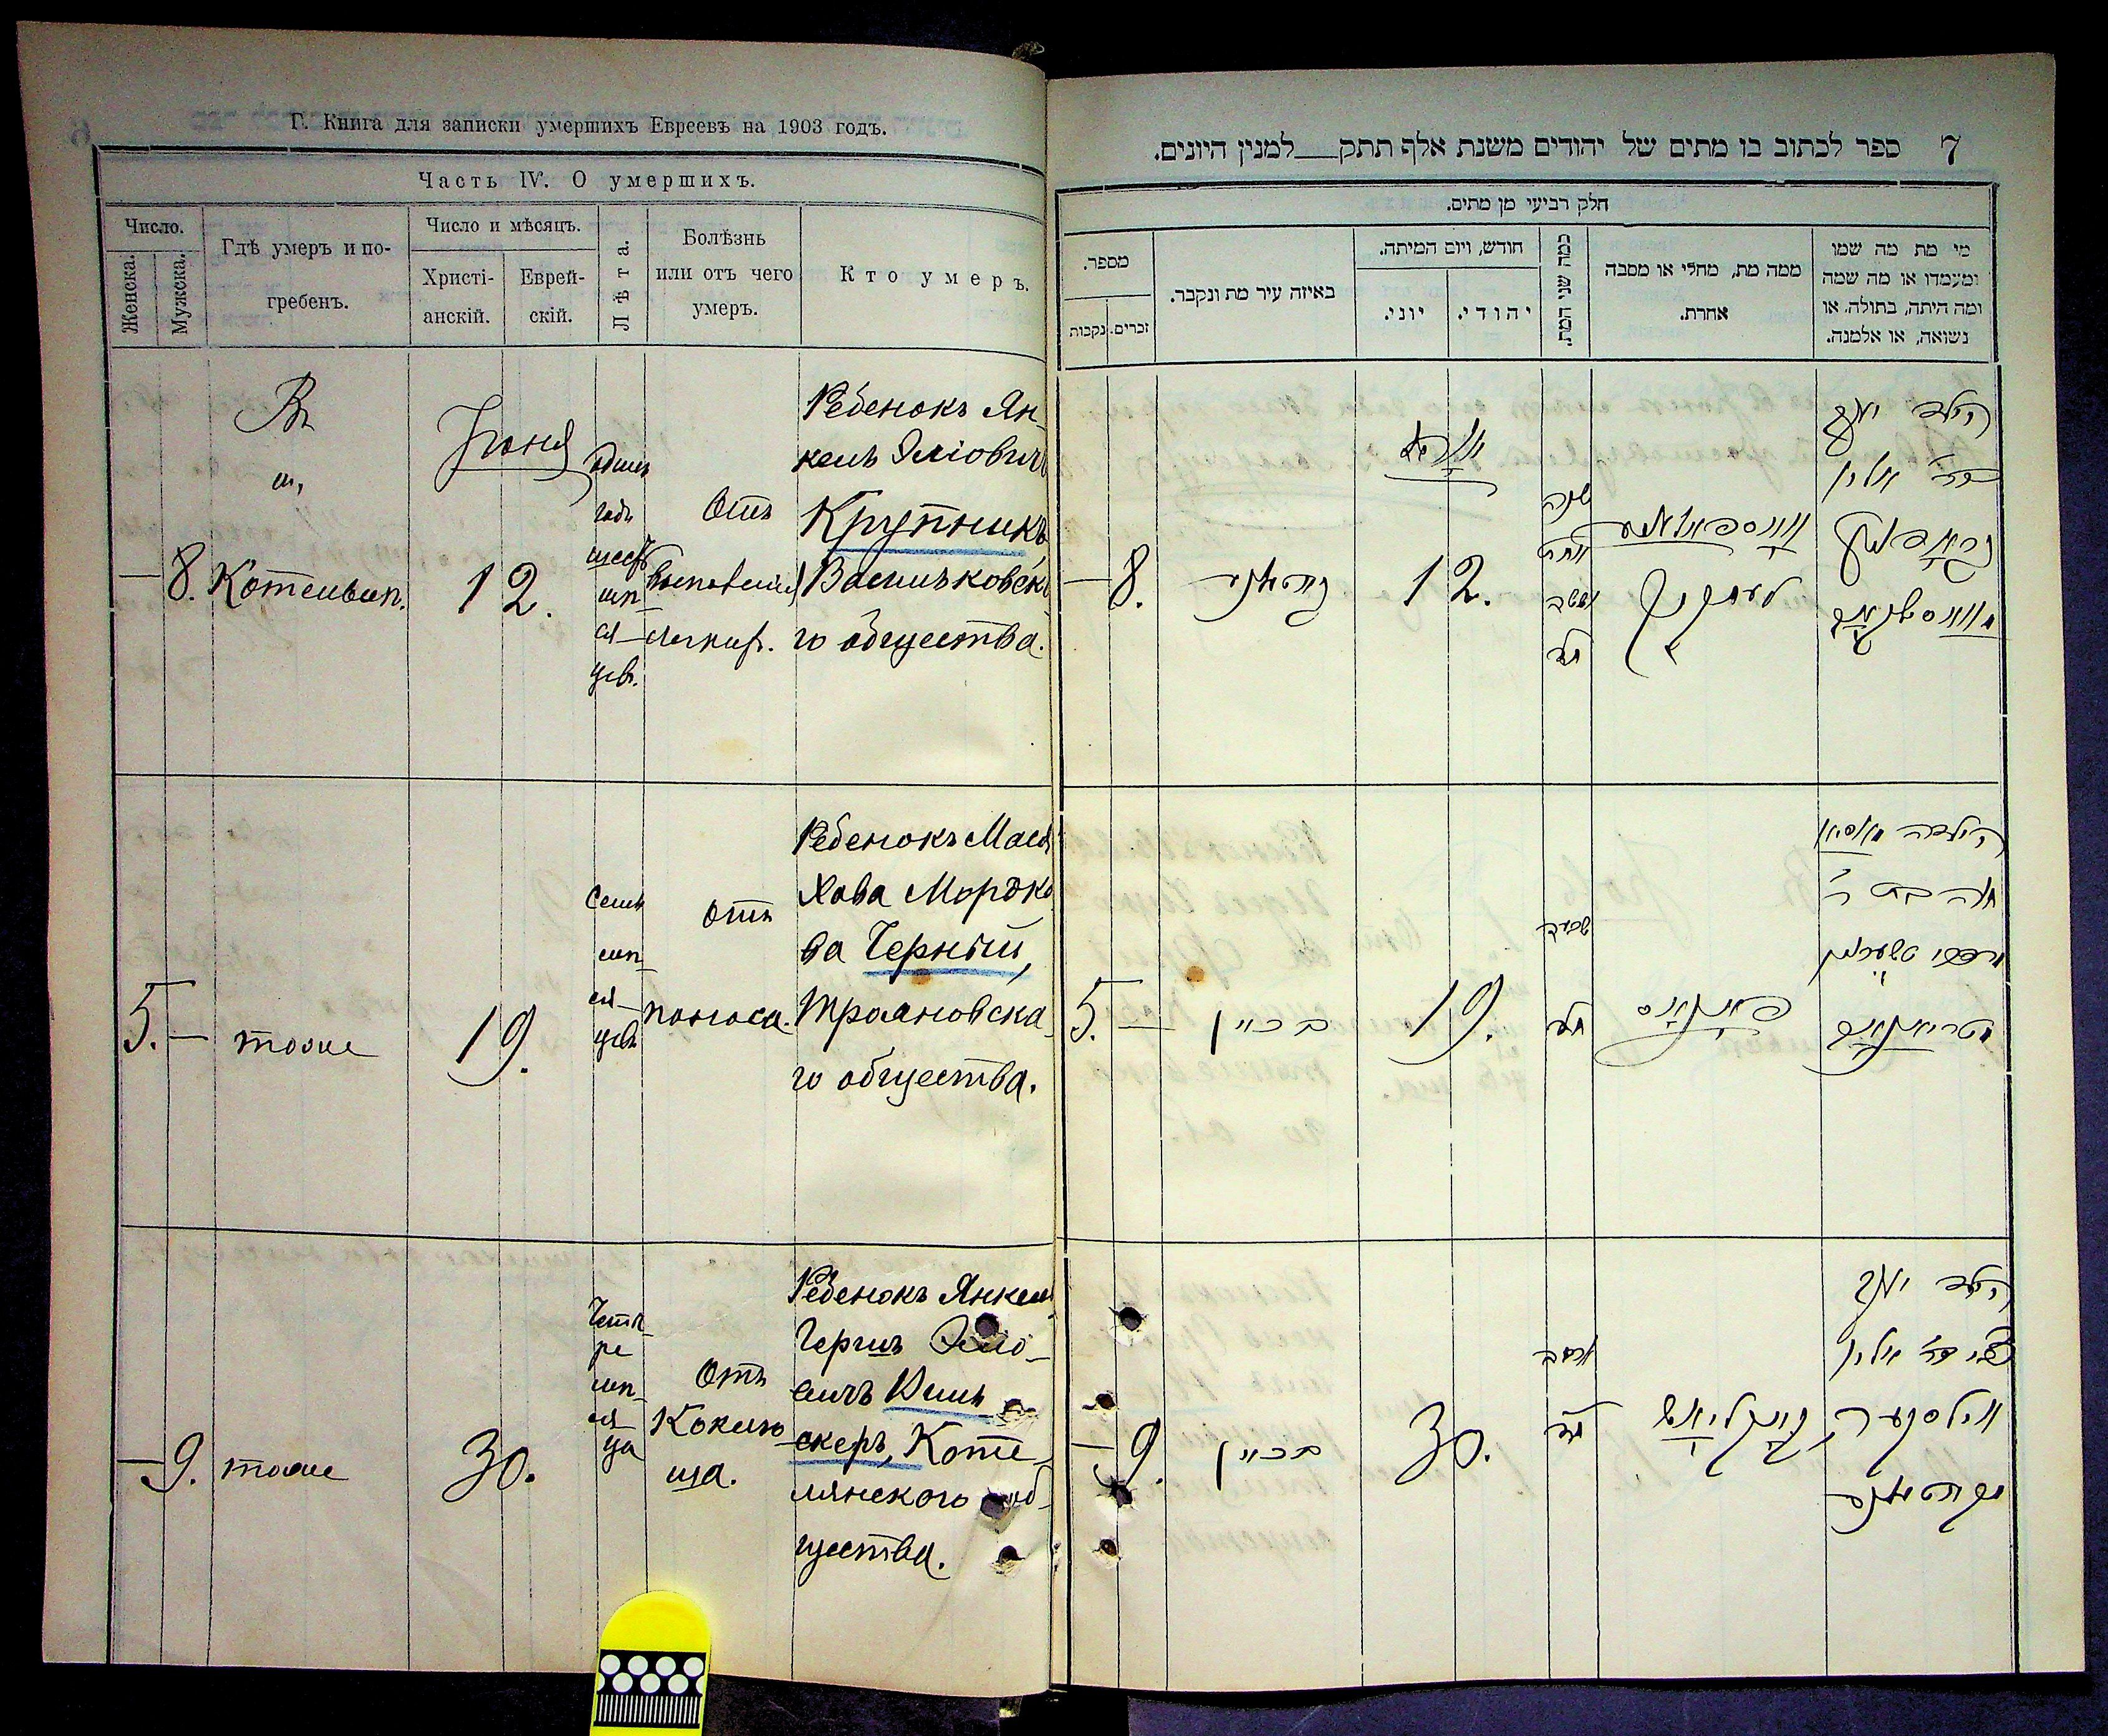 Г. Книга для записки умершихъ Евреевъ на 1903 годъ.
Часть IV. О умершихъ.
Число.
Женска.
Мужска.
Гдѣ умеръ и по-
гребенъ.
Число и мѣсяцъ.
Христі-
анскій.
Еврей-
скій.
Лѣта.
Болѣзнь
или отъ чего
умеръ.
Кто умеръ.
Въ
м.
Котельн.
— 8.
Іюня
12.
одинъ
годъ
шесть
мѣ-
ся-
цев.
Отъ
воспаленія
легких.
Ребенокъ Ян-
кель Эліовичъ
Крупникъ
Васильковска
го общества.
5. —
тоже
19.
Семь
мѣ-
ся-
цевъ
отъ
поноса.
Ребенокъ Мася
Хава Мордко
ва Черный,
Трояновска-
го общества.
— 9.
тоже
30.
Четы-
ре
мѣ-
ся-
ца
Отъ
Коклю
ша.
Ребенокъ Янкель
Гершъ Эліо-
вичъ
скеръ, Коте-
лянского об-
щества.
ספר לכתוב בו מתים של יהודים משנת אלף תתק__למנין היונים.
7
חלק רביעי מן מתים.
מספר.
נקבות
זכרים.
באיזה עיר מת ונקבר.
חודש, ויום המיתה.
יוני.
יהודי.
כמה שני המת.
ממה מת, מחלי או מסבה
אחרת.
מי מת מה שמו
ומעמדו או מה שמה
ומה היתה, בתולה, או
נשואה, או אלמנה.
— 8.
12.
שנה
ששה
חד
הילד יעקב
בר׳ אלי׳
5. —
בכ״ן
19.
שבעה
חד
הילדה מאסיא
חוה בת ר׳
— 9.
בכ״ן
30.
ארבע
חד
הילד יעקב
צבי בר׳ אלי׳